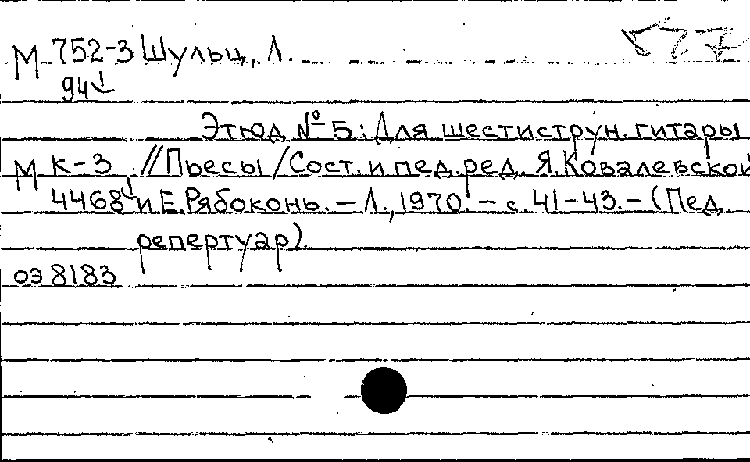 М 752-3 Шульц, Л.
94
Этюд № 5: Для шестиструн. гитары
М К-3 // Пьесы / Сост. и пед. ред. Я. Ковалевской
4468 и Е. Рябоконь. – Л., 1970. – с. 41-43. – (Пед.
репертуар).
оэ 8183